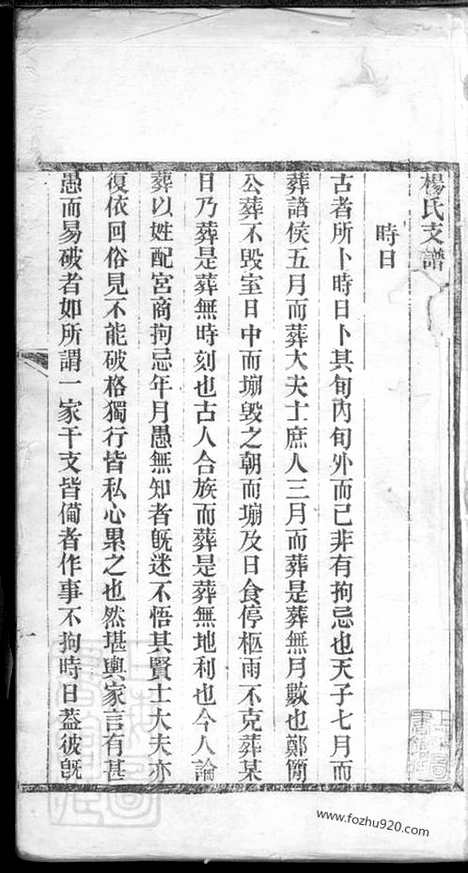 楊氏支譜
時日
古者所卜時日卜其旬內旬外而已非有拘忌也天子七月而
葬諸侯五月而葬大夫士庶人三月而葬是葬無月數也鄭簡
公葬不毀室日中而塴毀之朝而塴及日食停柩雨不克葬某
日乃葬是葬無時刻也古人合族而葬是葬無地利也今人論
葬以姓配宮商拘忌年月愚無知者旣迷不悟其賢士大夫亦
復依回俗見不能破格獨行皆私心累之也然堪輿家言有甚
愚而易破者如所謂一家干支皆備者作事不拘時日蓋彼旣
www.fozhu920.com